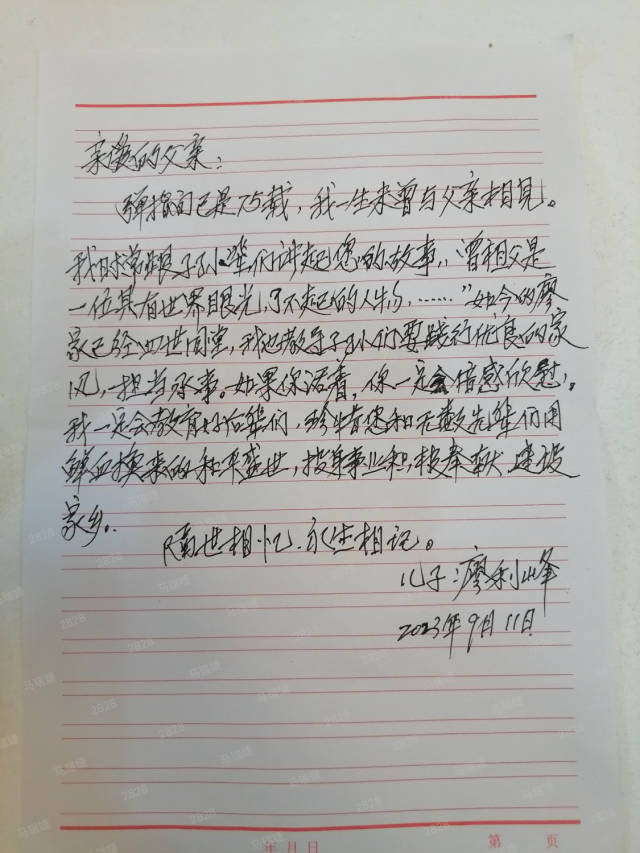 亲爱的父亲：
弹指间已是75载，我一生未曾与父亲相见。
我时常跟子孙辈们讲起您的故事，“曾祖父是
一位具有世界眼光，了不起的人物，……”如今的廖
家已经四世同堂，我也教导子孙们要践行优良的家
风，担当承事。如果你活着，你一定会倍感欣慰，
我一定会教育好后辈们，珍惜您和无数先辈们用
鲜血换来的和平盛世，投身事业积极奉献，建设
家乡。
隔世相忆，永生相记。
儿子：廖利峰
2023年9月11日
年 月 日
第 页